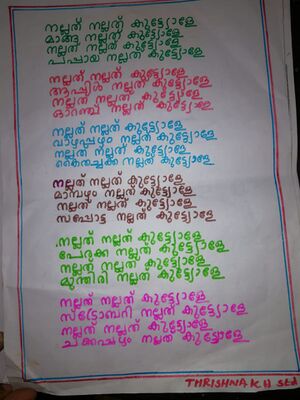 നല്ലത് നല്ലത് കുട്ട്യോളേ
മാങ്ങ നല്ലത് കുട്ട്യോളേ
നല്ലത് നല്ലത് കുട്ട്യോളേ
പപ്പായ നല്ലത് കുട്ട്യോളേ
നല്ലത് നല്ലത് കുട്ട്യോളേ
ആപ്പിൾ നല്ലത് കുട്ട്യോളേ
നല്ലത് നല്ലത് കുട്ട്യോളേ
ഓറഞ്ച് നല്ലത് കുട്ട്യോളേ
നല്ലത് നല്ലത് കുട്ട്യോളേ
വാഴപ്പഴം നല്ലത് കുട്ട്യോളേ
നല്ലത് നല്ലത് കുട്ട്യോളേ
കൈതച്ചക്ക നല്ലത് കുട്ട്യോളേ
നല്ലത് നല്ലത് കുട്ട്യോളേ
മാമ്പഴം നല്ലത് കുട്ട്യോളേ
നല്ലത് നല്ലത് കുട്ട്യോളേ
സപ്പോട്ട നല്ലത് കുട്ട്യോളേ
നല്ലത് നല്ലത് കുട്ട്യോളേ
പേരക്ക നല്ലത് കുട്ട്യോളേ
നല്ലത് നല്ലത് കുട്ട്യോളേ
മുന്തിരി നല്ലത് കുട്ട്യോളേ
നല്ലത് നല്ലത് കുട്ട്യോളേ
സ്ട്രോബറി നല്ലത് കുട്ട്യോളേ
നല്ലത് നല്ലത് കുട്ട്യോളേ
ചക്കപ്പഴം നല്ലത് കുട്ട്യോളേ
THRISHNA K H